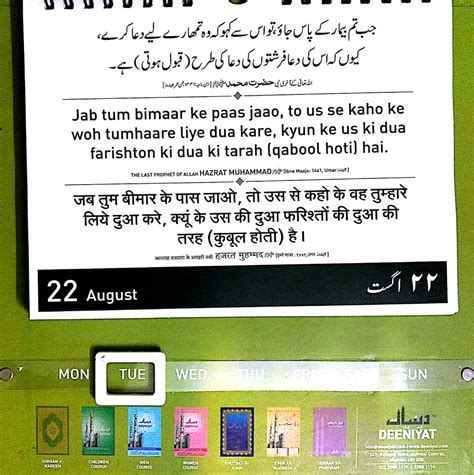 جب تم بیمار کے پاس جاؤ، تو اس سے کہو کہ وہ تمھارے لیے دعا کرے،
کیوں کہ اس کی دعا فرشتوں کی دعا کی طرح (قبول ہوتی) ہے۔
حضرت محمد ﷺ
Jab tum bimaar ke paas jaao, to us se kaho ke
woh tumhaare liye dua kare, kyun ke us ki dua
farishton ki dua ki tarah (qabool hoti) hai.
THE LAST PROPHET OF ALLAH HAZRAT MUHAMMAD ﷺ [Ibne Maaja: 1441, Umar]
जब तुम बीमार के पास जाओ, तो उस से कहो के वह तुम्हारे
लिये दुआ करे, क्यूं के उस की दुआ फरिश्तों की दुआ की
तरह (कुबूल होती) है।
अल्लाह तआला के आखरी नबी हज़रत मुहम्मद ﷺ
22 August ۲۲ اگست
MON TUE WED THU FRI SAT SUN
دینیات
DEENIYAT
QURAAN-E-KAREEM CHILDREN COURSE MEN COURSE WOMEN COURSE